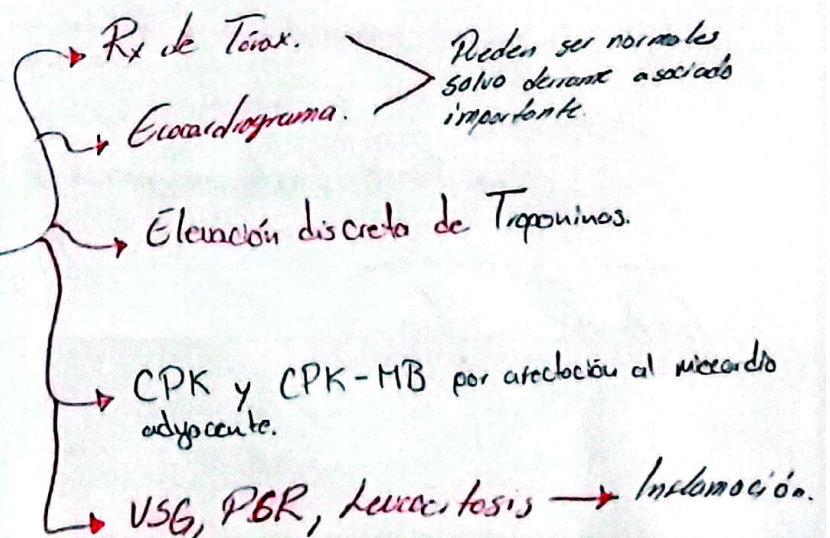 Rx de Tórax.
Pueden ser normales
salvo derrame asociado
importante.
Ecocardiograma.
Elevación discreta de Troponinas.
CPK y CPK-MB por afectación al miocardio
adyacente.
VSG, PCR, Leucocitosis → Inflamación.